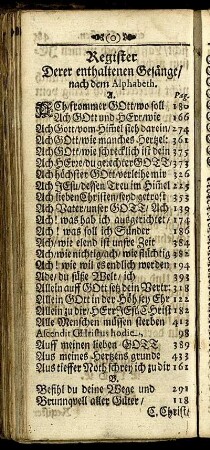 Register
Derer enthaltenen Gesänge/
nach dem Alphabeth.
A. Pag.
ACh frommer GOtt/ wo soll 180
Ach GOtt und HErr/ wie 166
Ach Gott/ vom Him̃el sieh darein/ 274
Ach GOtt/ wie manches Hertzel: 361
Ach Gott/ wie schrecklich ist dein 375
Ach HErr/ du gerechter GOTT 373
Ach höchster GOtt/ verleihe mir 326
Ach JEsu/ dessen Treu im Him̃el 225
Ach lieben Christen/ seyd getrost 353
Ach Vater/ unser GOTT/ Ach 139
Ach! was hab ich ausgerichtet/ 174
Ach! was soll ich Sünder 186
Ach/ wie elend ist unser Zeit 384
Ach/ wie nichtig/ ach/ wie flüchtig 382
Ach! wie wil es endlich werden 194
Ade/ du süsse Welt/ ich 393
Allein auff GOtt setz dein Vertr: 318
Allein GOtt in der Höh sey Ehr 122
Allein zu dir/ HErr JEsu Christ 182
Alle Menschen müssen sterben 413
Ascendit Christus hodie. 98
Auff meinen lieben GOTT 389
Aus meines Hertzens grunde 433
Aus tieffer Noth schrey ich zu dir 161
B.
Befihl du deine Wege und 291
Brunnqvell aller Güter/ 118
C. Christ/